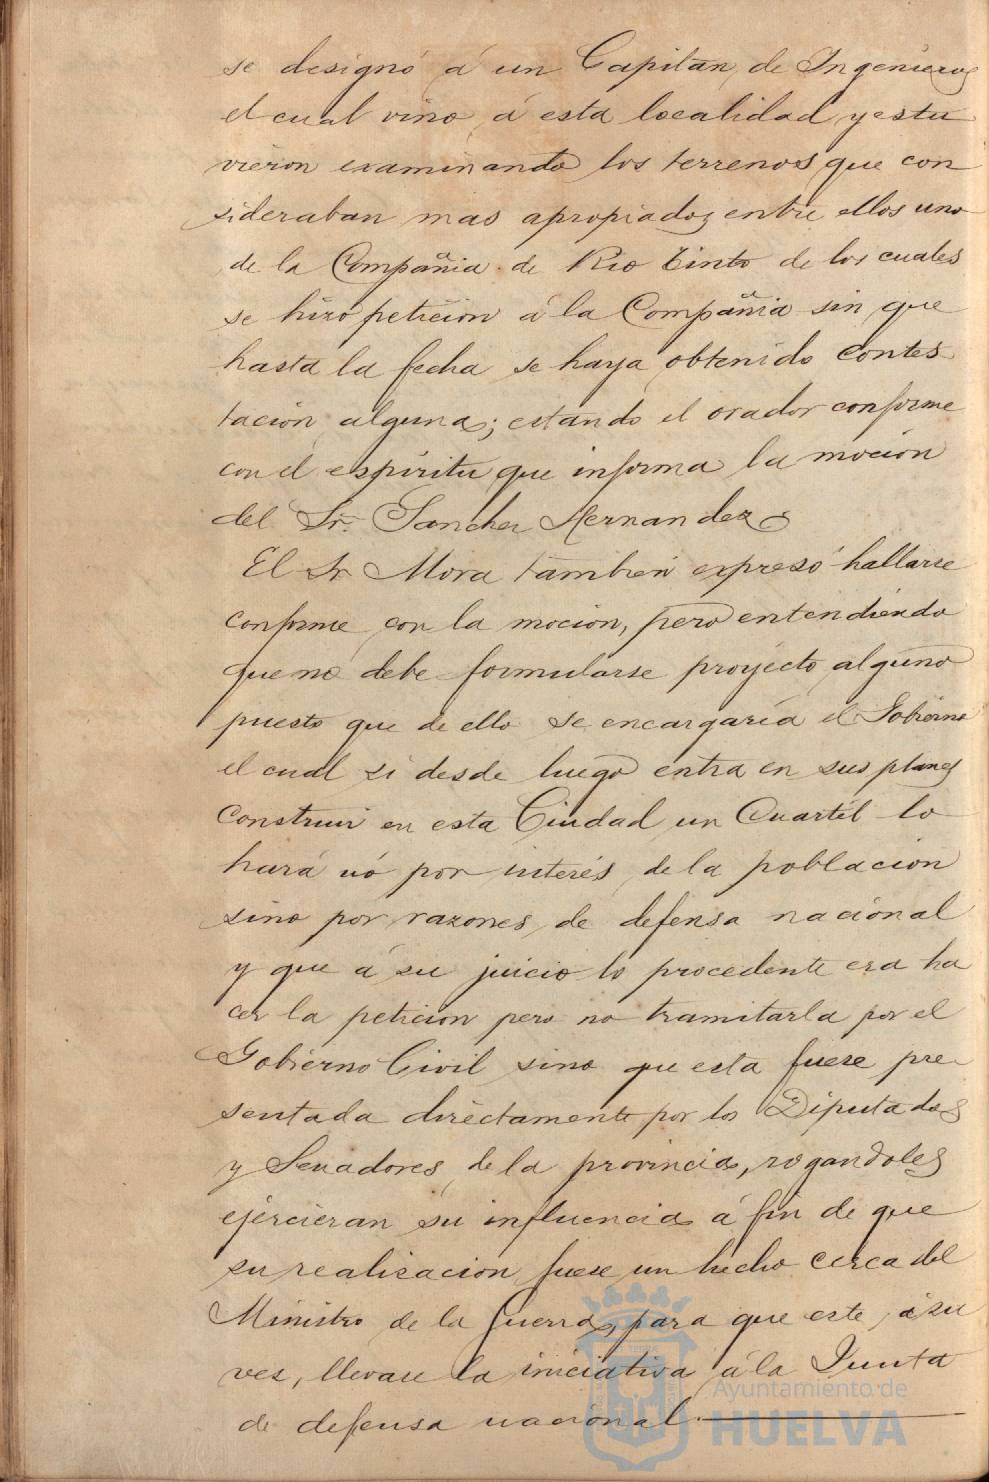 se designó á un Capitan de Ingenieros
el cual vino á esta localidad y estu
vieron examinando los terrenos que con
sideraban mas apropiados entre ellos uno
de la Compañia de Rio Tinto de los cuales
se hizo petición á la Compañia sin que
hasta la fecha se haya obtenido contes
tación alguna; estando el orador conforme
con el espíritu que informa la moción
del Sr. Sanchez Hernandez
El Sr Mora también expresó hallarse
conforme con la moción, pero entendiendo
que no debe formularse proyecto alguno
puesto que de ello se encargaría el Gobierno
el cual si desde luego entra en sus planes
construir en esta Ciudad un Cuartel lo
hará nó por interés de la población
sino por razones de defensa nacional
y que á su juicio lo procedente era ha
cer la petición pero no tramitarla por el
Gobierno Civil sino que esta fuese pre
sentada directamente por los Diputados
y Senadores de la provincia, rogandoles
ejercieran su influencia á fin de que
su realisacion fuese un hecho cerca del
Ministro de la Guerra, para que este, á su
ves, llevase la iniciativa á la Junta
de defensa nacional.
Ayuntamiento de
HUELVA